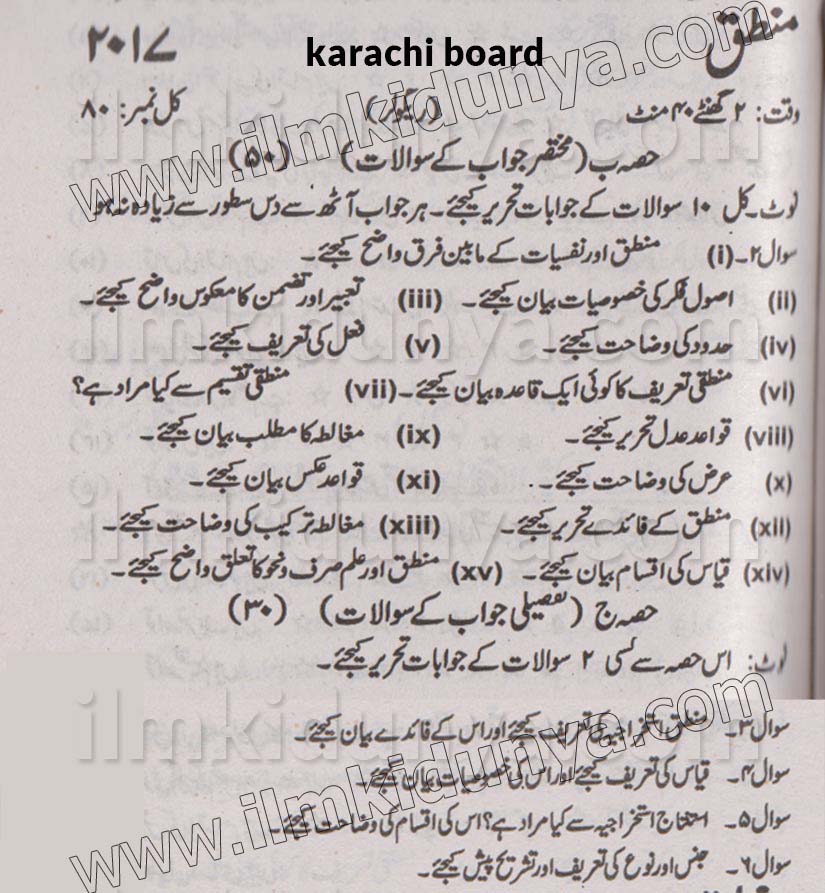 منطق karachi board ۲۰۱۷
وقت: ۲ گھنٹے ۴۰ منٹ (ریگولر) کل نمبر: ۸۰
حصہ ب (مختصر جواب کے سوالات) (۵۰)
نوٹ۔ کل ۱۰ سوالات کے جوابات تحریر کیجئے۔ ہر جواب آٹھ سے دس سطور سے زیادہ نہ ہو
سوال ۲۔ (i) منطق اور نفسیات کے مابین فرق واضح کیجئے۔
(ii) اصول فکر کی خصوصیات بیان کیجئے۔ (iii) تعبیر اور تضمن کا معکوس واضح کیجئے۔
(iv) حدود کی وضاحت کیجئے۔ (v) فصل کی تعریف کیجئے۔
(vi) منطقی تعریف کا کوئی ایک قاعدہ بیان کیجئے۔ (vii) منطقی تقسیم سے کیا مراد ہے؟
(viii) قواعد عدل تحریر کیجئے۔ (ix) مغالطہ کا مطلب بیان کیجئے۔
(x) عرض کی وضاحت کیجئے۔ (xi) قواعد عکس بیان کیجئے۔
(xii) منطق کے فائدے تحریر کیجئے۔ (xiii) مغالطہ ترکیب کی وضاحت کیجئے۔
(xiv) قیاس کی اقسام بیان کیجئے۔ (xv) منطق اور علم صرف و نحو کا تعلق واضح کیجئے۔
حصہ ج (تفصیلی جواب کے سوالات) (۳۰)
نوٹ: اس حصہ سے کسی ۲ سوالات کے جوابات تحریر کیجئے۔
سوال ۳۔ منطق استخراجیہ کی تعریف کیجئے اور اس کے فائدے بیان کیجئے۔
سوال ۴۔ قیاس کی تعریف کیجئے اور اس کی خصوصیات بیان کیجئے۔
سوال ۵۔ استنتاج استخراجیہ سے کیا مراد ہے؟ اس کی اقسام کی وضاحت کیجئے۔
سوال ۶۔ جنس اور نوع کی تعریف اور تشریح پیش کیجئے۔
www.ilmkidunya.com
ilmkidunya.com
ilmkidunya.com
ilmkidunya.com
ilmkidunya.com
www.ilmkidunya.com